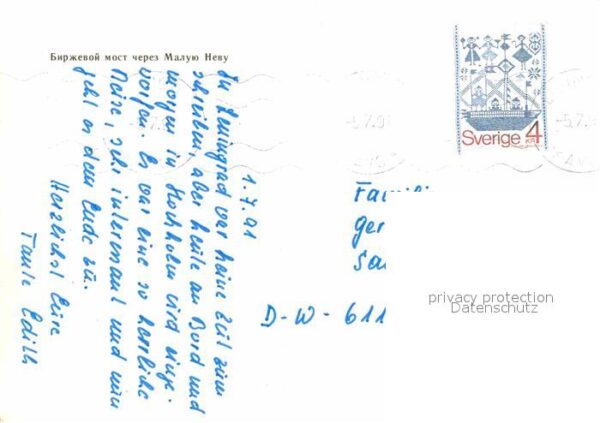 Биржевой мост через Малую Неву
1.7.91
In Leningrad war keine Zeit zum
schreiben, aber heute an Bord und
morgen in Stockholm wird einge-
worfen. Es war eine so herrliche
Reise, sehr interessant und nun
geht es dem Ende zu.
Herzlichst Eure
Tante Edith
Sverige 4 KR
-5.7.9
Famili
Ger
Sa
D-W-611
privacy protection
Datenschutz